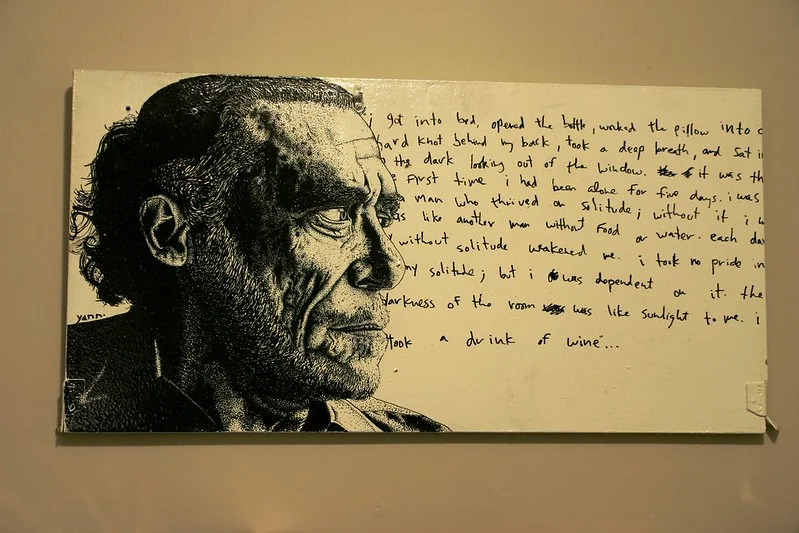 i got into bed, opened the bottle, worked the pillow into
hard knot behind my back, took a deep breath, and sat
the dark looking out of the window. it was th
first time i had been alone for five days. i was
man who thrived on solitude; without it i w
as like another man without food or water. each da
without solitude weakened me. i took no pride in
my solitude; but i was dependent on it. the
darkness of the room was like sunlight to me. i
took a drink of wine"...